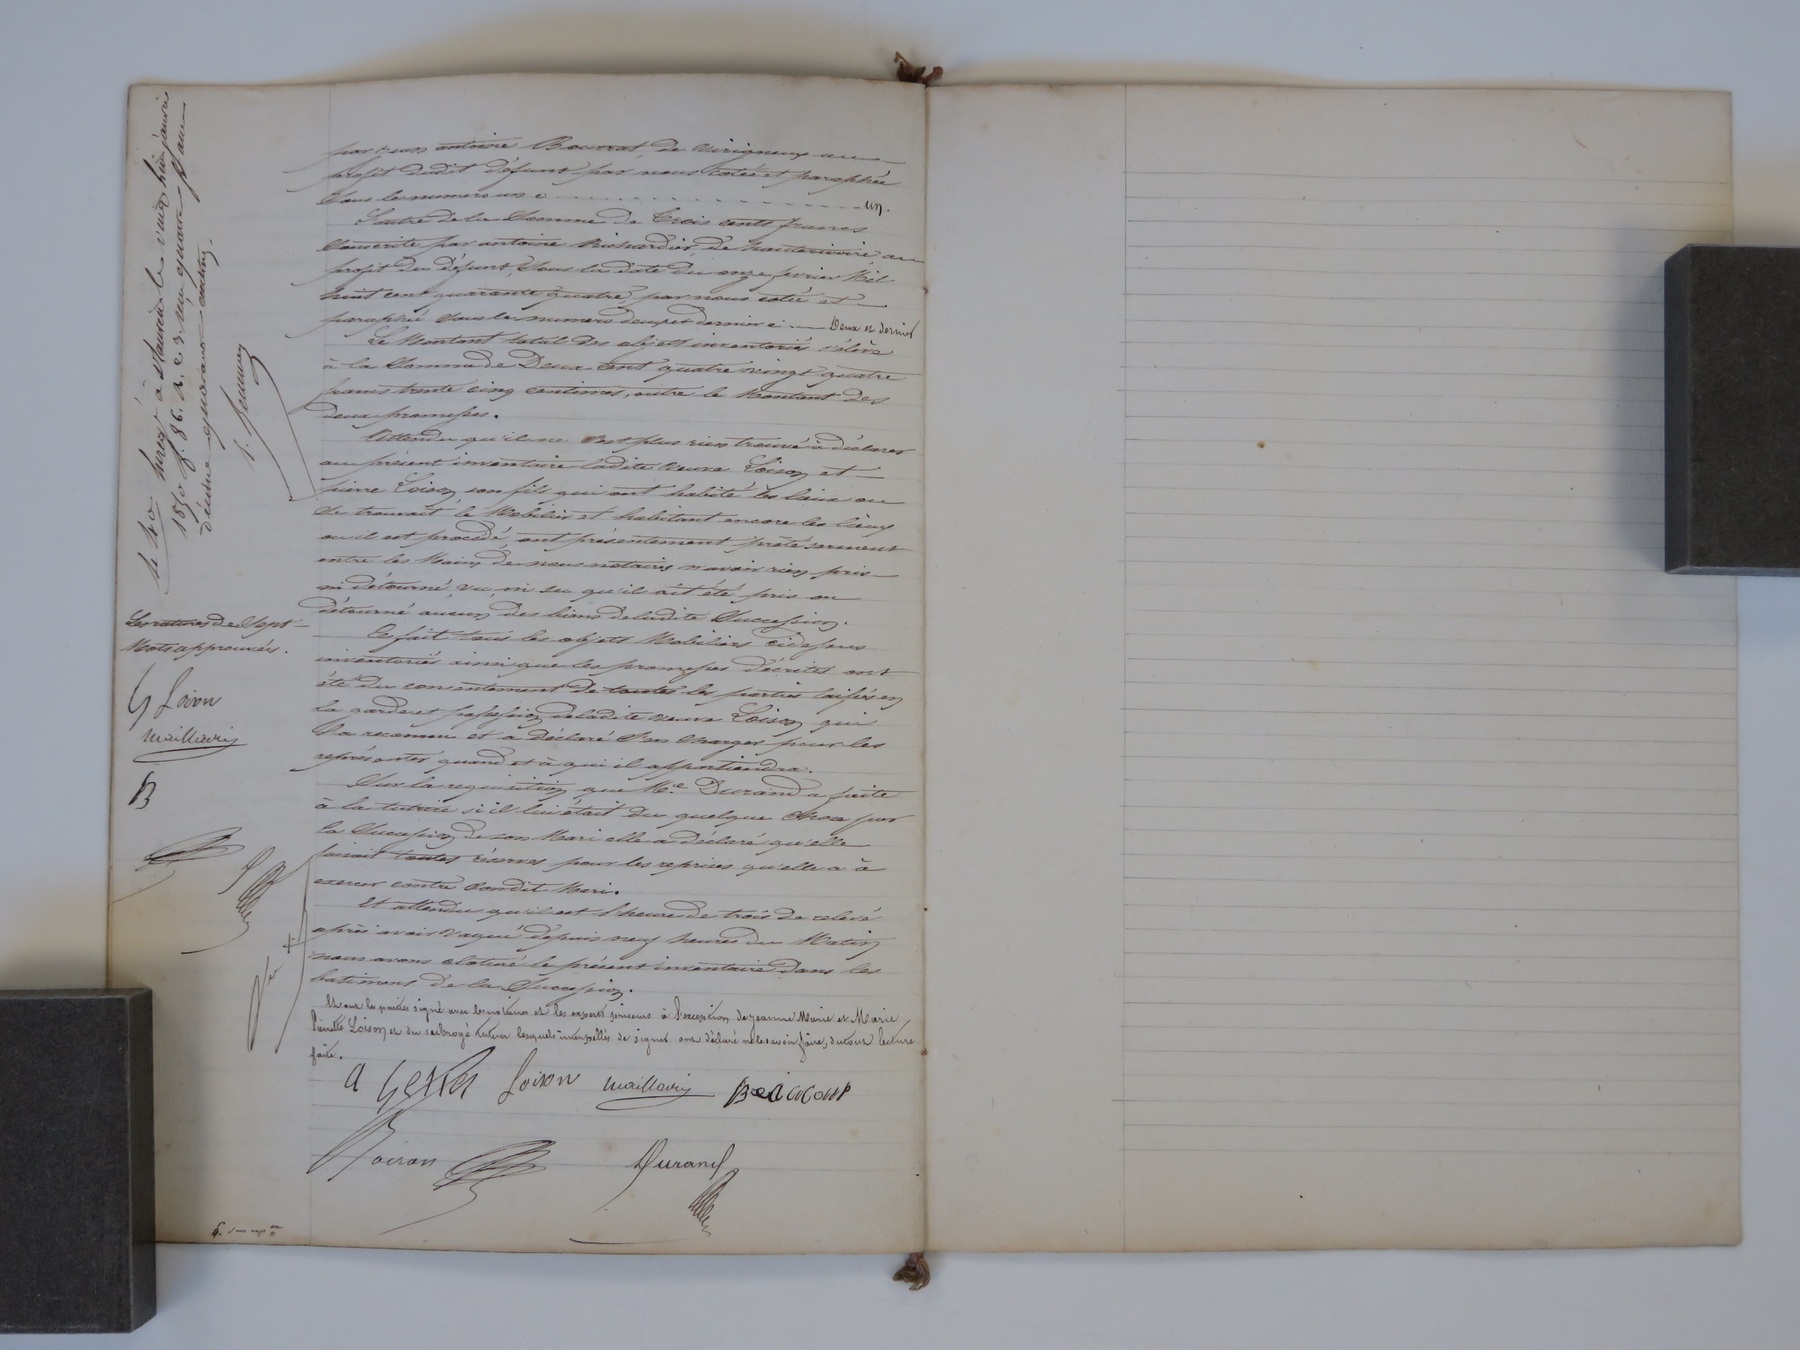 par sieur antoine Bouvrot de virigneux au
profit dudit défunt par nous cotée et paraphée
sous le numero un c un.
L'autre de la somme de trois cents francs
souscrite par antoine Richardier de hauterivoire au
profit du défunt, sous la date du onze fevrier Mil
huit cent quarante quatre, par nous cotée et
paraphée sous le numero deux et dernier c Deux et dernier
Le Montant total des objets inventoriés s'élève
à la Somme de Deux Cent quatre vingt quatre
francs trente cinq centimes, outre le Montant des
deux promesses.
Attendu qu'il ne s'est plus rien trouvé à déclarer
au présent inventaire ladite veuve Loison et
pierre Loison son fils qui ont habité les lieux ou
se trouvait le Mobilier et habitant encore les lieux
ou il est procédé, ont présentement prêté serment
entre les Mains de nous notaires n'avoir rien pris
ni détourné, vu ni su qu'il ait été pris ou
détourné aucun des biens de ladite Succession.
Ce fait tous les objets Mobiliers cidessus
inventoriés ainsi que les promesses décrites ont
été du consentement de toutes les parties laissés en
la garde et possession de ladite veuve Loison qui
l'a reconnu et a déclaré s'en charger pour les
représenter quand et à qui il appartiendra.
Sur la requisition que Me Durand a faite
à la tutrice si il lui était du quelque chose par
la Succession de son Mari elle a déclaré qu'elle
faisait toutes réserves pour les reprises qu'elle a à
exercer contre sondit Mari.
Et attendu qu'il est l'heure de trois de relevé
après avoir vaqué depuis neuf heures du Matin
nous avons cloturé le présent inventaire dans les
batiments de la Succession.
Et ont les parties signé avec les notaires et les experts priseurs à l'exception de jeanne Marie et Marie
pierrette Loison et du subrogé tuteur lesquels interpellés de signer ont déclaré ne le savoir faire, du tout lecture
faite.
Loison Maillavin
Boiron Durand
Les ratures de Sept
Mots approuvées.
Loison
Maillavin
B
1850 f. 86.
décime